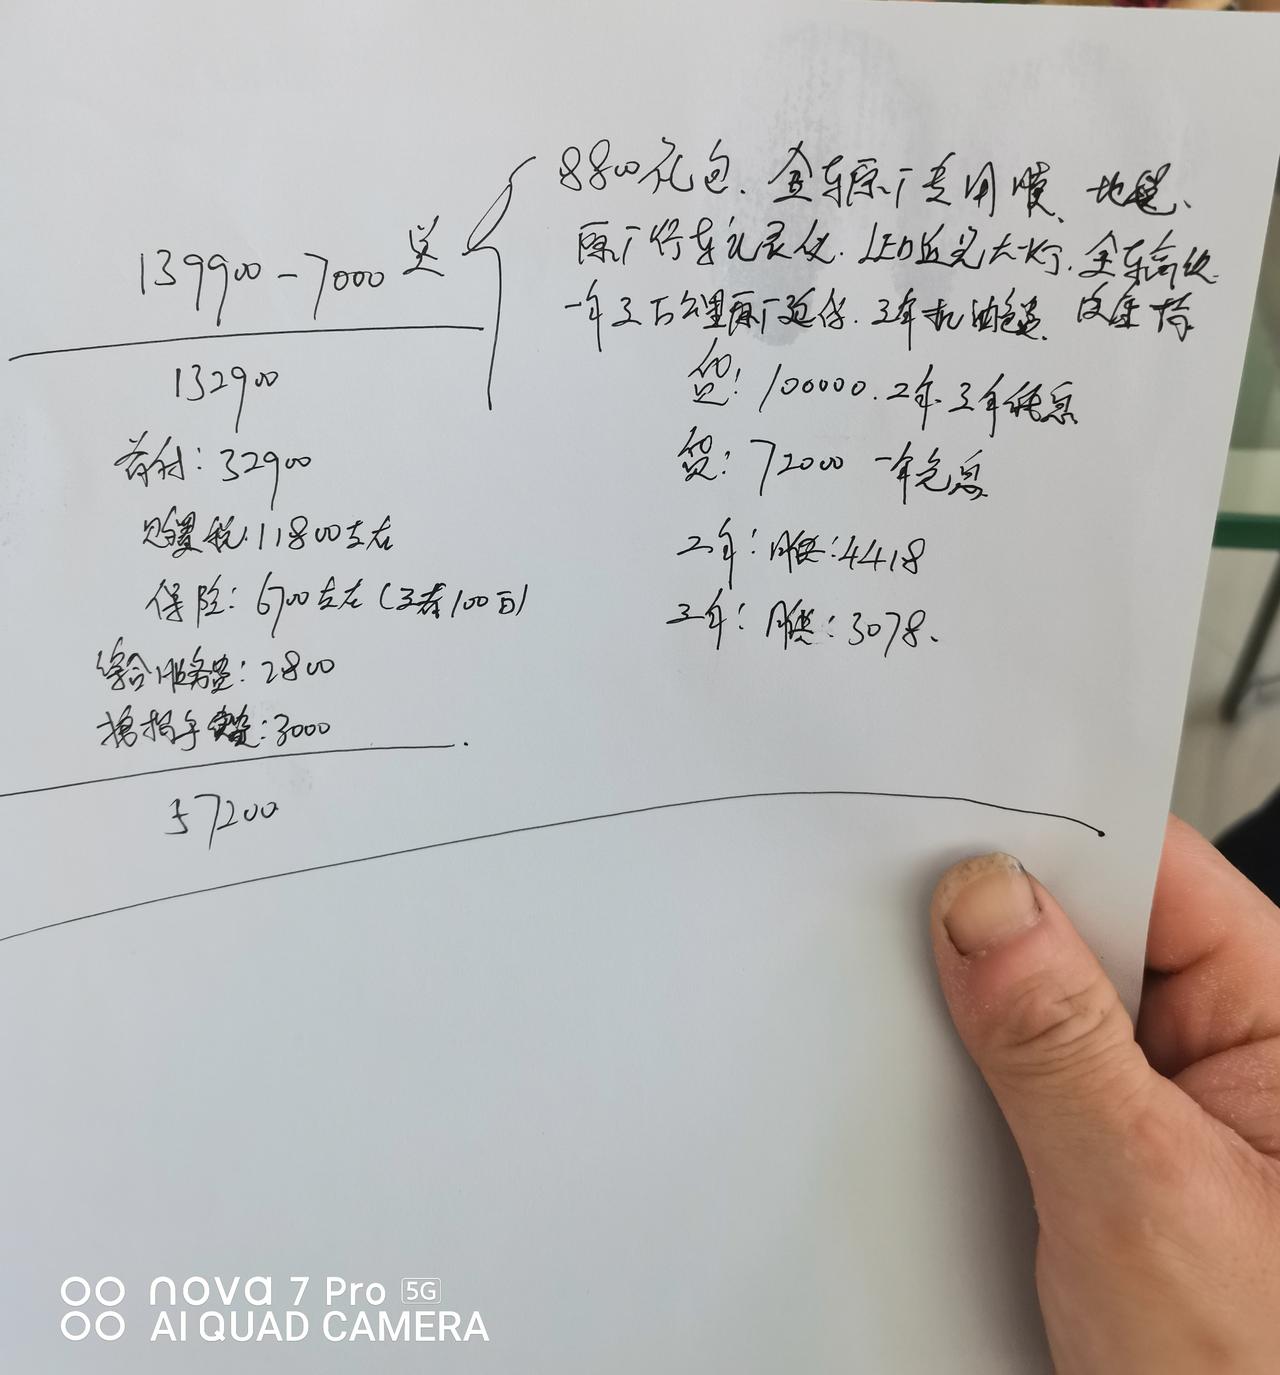 139900-7000 送
132900
首付: 32900
购置税: 11800左右
保险: 6700左右 (三者100万)
综合服务费: 2800
抵押手续费: 3000
57200
8800礼包、全车原厂专用膜、地毯、
原厂行车记录仪、LED近光大灯、全车
一年三万公里原厂延保、三年机油
贷: 100000. 2年. 3年 息
贷: 72000 一年免息
二年: 月供: 4418
三年: 月供: 3078、
nova 7 Pro 5G
AI QUAD CAMERA